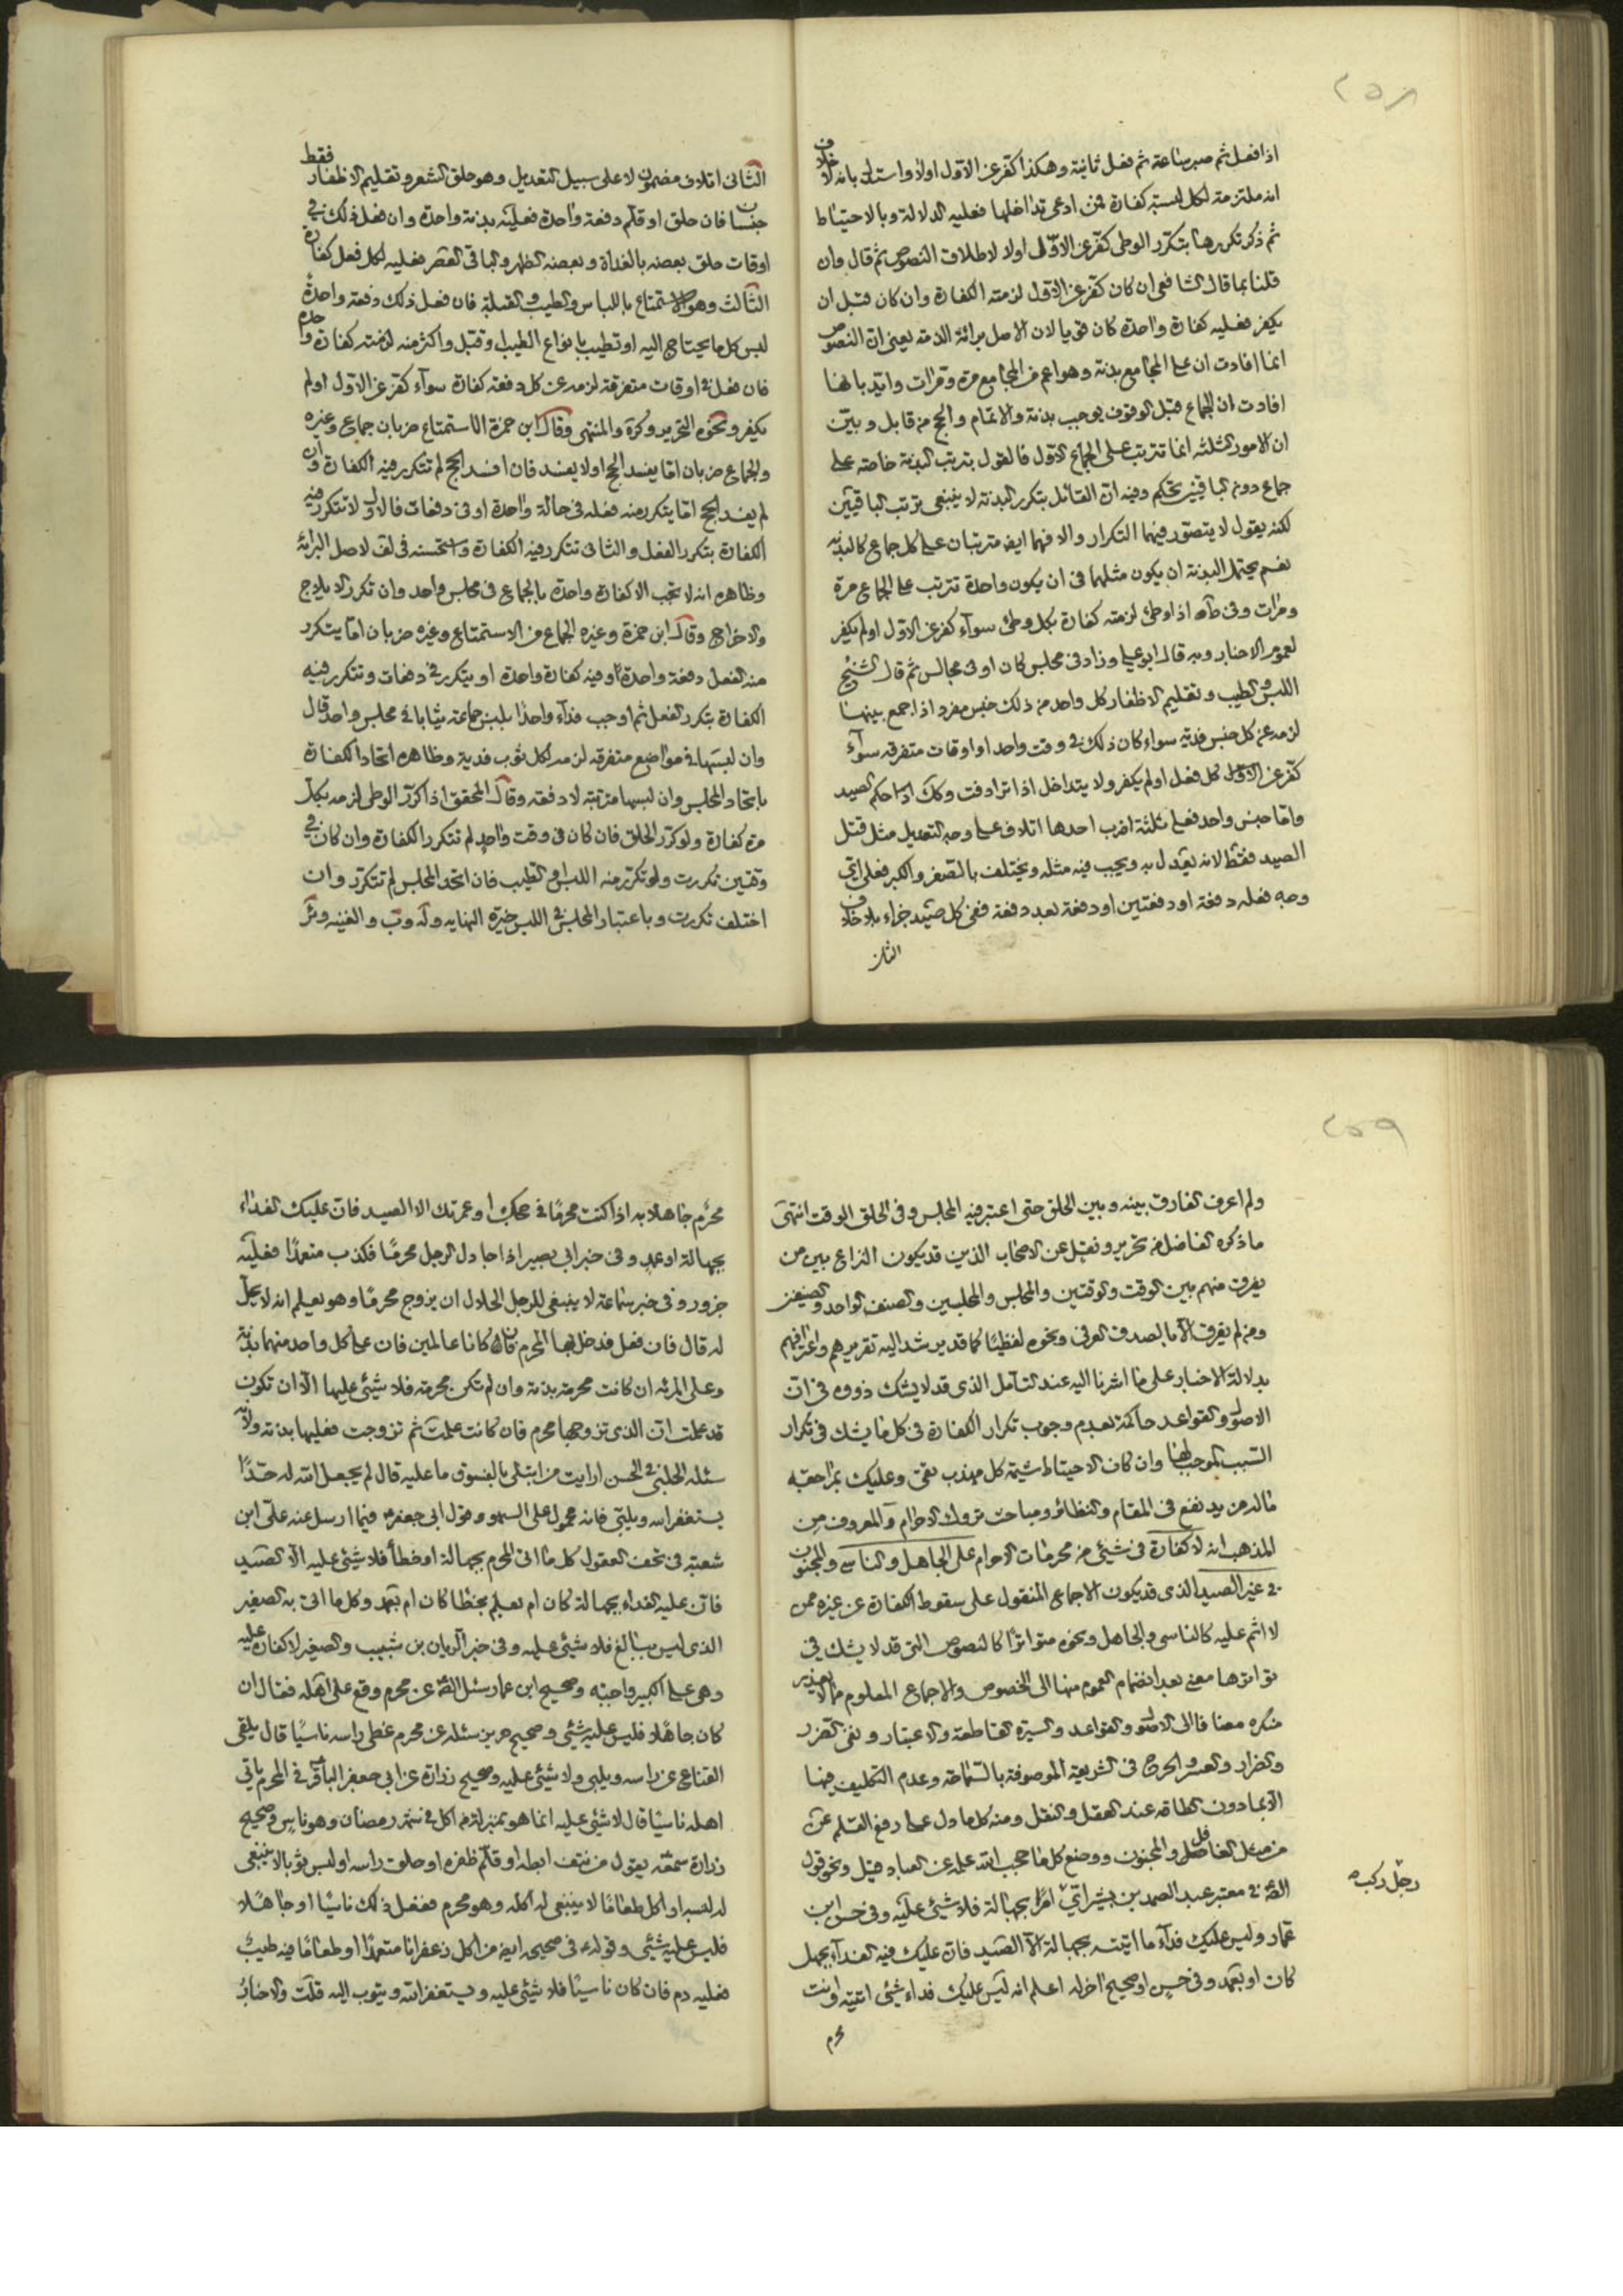 ٢٥٨
اذا فعل ثم صبر ساعة ثم فعل ثانية وهكذا كفر عن الاول اولا واستدل بانه لا خلاف
انه ملتزمة لكل لبسة كفارة فمن ادعى تداخلها فعليه الدلالة وبالاحتياط
ثم ذكر تكررها بتكرر الوطى كفر عن الاولى اولا لاطلاق النصوص ثم قال وان
قلنا بما قال الشافعى ان كان كفر عن الاول لزمته الكفارة وان كان قبل ان
يكفر فعليه كفارة واحدة كان قويا لان الاصل برائة الذمة يعنى ان النصوص
انما افادت ان على المجامع بدنة وهو اعم من المجامع مرة ومرات وايد بانها
افادت ان الجماع قبل الوقوف يوجب بدنة والاتمام والحج من قابل وبين
ان الامور الثلثة انما تترتب على الجماع الاول فالقول بترتب البدنة خاصة على
جماع دون الباقين تحكم وفيه ان القائل بتكرر البدنة لا ينبغى ترتب الباقيين
لكنه يقول لا يتصور فيهما التكرار والا فهما ايضا مترتبان على كل جماع كالبدنة
نعم يحتمل البدنة ان يكون مثلهما فى ان يكون واحدة تترتب على الجماع مرة
ومرات وفى ط اذا وطئ لزمته كفارة بكل وطئ سوآء كفر عن الاول او لم يكفر
لعموم الاخبار وبه قال ابو على وزاد فى مجلس كان او فى مجالس ثم قال الشيخ
اللبس والطيب وتقليم الاظفار كل واحد من ذلك جنس مفرد اذا جمع بينها
لزمه عن كل جنس فدية سواء كان ذلك فى وقت واحد او اوقات متفرقه سوآء
كفر عن الاول كل فعل او لم يكفر ولا يتداخل اذا ترادفت وكك حكم الصيد
واما جنس واحد فعلى ثلثة اضرب احدها اتلاف على وجه التعديل مثل قتل
الصيد فقط لانه يعدل به ويجب فيه مثله ويختلف بالصغر والكبر فعلى اى
وجه فعله دفعة او دفعتين او دفعة بعد دفعة ففى كل صيد جزاء بلا خلاف
الثانى
الثانى اتلاف مضمون لا على سبيل التعديل وهو حلق الشعر وتقليم الاظفار فقط
جنسان فان حلق او قلم دفعة واحدة فعليه بدنة واحدة وان فعل ذلك فى
اوقات حلق بعضه بالغداة وبعضه الظهر والباقى العصر فعليه لكل فعل كفارة
الثالث وهو الاستمتاع باللباس والطيب والقبلة فان فعل ذلك دفعة واحدة
لبس كل ما يحتاج اليه او تطيب بانواع الطيب او قبل واكثر منه لزمته كفارة واحدة
فان فعل فى اوقات متفرقة لزمه عن كل دفعة كفارة سوآء كفر عن الاول او لم
يكفر ونحوه التحرير وكرة والمنتهى وقال ابن حمزة الاستمتاع ضربان جماع وغيره
والجماع ضربان اما يفسد الحج او لا يفسد فان افسد الحج لم تتكرر فيه الكفارة وان
لم يفسد الحج اما يتكرر منه فعله فى حالة واحدة او فى دفعات فالاول لا تتكرر فيه
الكفارة بتكرر الفعل والثانى تتكرر فيه الكفارة واستحسنه فى لف لاصل البرائة
وظاهره انه لا تجب الا كفارة واحدة بالجماع فى مجلس واحد وان تكرر الايلاج
والاخراج وقال ابن حمزة وغيره الجماع من الاستمتاع وغيره ضربان اما يتكرر
منه الفعل دفعة واحدة وفيه كفارة واحدة او يتكرر فى دفعات وتتكرر فيه
الكفارة بتكرر الفعل ثم اوجب فدآء واحدا بلبس جماعة ثيابا فى مجلس واحد قال
وان لبسها فى مواضع متفرقه لزمه لكل ثوب فدية وظاهره اتحاد الكفارة
باتحاد المجلس وان لبسها مرتبة لا دفعة وقال المحقق اذا كرر الوطى لزمه بكل
مرة كفارة ولو كرر الحلق فان كان فى وقت واحد لم تتكرر الكفارة وان كان فى
وقتين تكررت ولو تكرر منه اللبس والطيب فان اتحد المجلس لم تتكرر وان
اختلف تكررت وباعتبار المجلس فى اللبس خيرة النهايه وله وب والغنيه وئر
٢٥٩
ولم اعرف الفارق بينه وبين الحلق حتى اعتبر فيه المجلس وفى الحلق الوقت انتهى
ما ذكره الفاضل من تحرير ونقل عن الاصحاب الذين قد يكون النزاع بين من
يفرق منهم بين الوقت والوقتين والمجلس والمجلسين والصنف الواحد والصنفين
ومن لم يفرق الا بالصدق العرفى ونحوه لفظيا كما قد يرشد اليه تقريرهم واعترافهم
بدلالة الاخبار على ما اشرنا اليه عند التأمل الذى قد لا يشك ذووه فى ان
الاصول والقواعد حاكمة بعدم وجوب تكرار الكفارة فى كل ما يشك فى تكرار
السبب الموجب لها وان كان الاحتياط شيمة كل مهذب تقى وعليك بمراجعة
ماله مزيد نفع فى المقام والنظائر ومباحث تروك الاحرام والمعروف من
المذهب انه لا كفارة فى شيئ من محرمات الاحرام على الجاهل والناسى والمجنون
فى غير الصيد الذى قد يكون الاجماع المنقول على سقوط الكفارة عن غيره ممن
لا اثم عليه كالناسى والجاهل ونحوه متواترا كالنصوص التى قد لا يشك فى
تواترها معنى بعد انضمام العموم منها الى الخصوص والاجماع المعلوم مما لا يعذر
منكره مضافا الى الاصول والقواعد والسيرة القاطعة والاعتبار ونفى الضرر
والضرار والعسر والحرج فى الشريعة الموصوفة بالسماحة وعدم التكليف فيها
الا بما دون الطاقة عند العقل والنقل ومنه كل ما دل على رفع القلم عن
مثل الغافل والمجنون ووضع كل ما حجب الله علمه عن العباد قيل ونحو قول
الصادق فى معتبر عبد الصمد بن بشير اى رجل ركب امرا بجهالة فلا شيئ عليه وفى حسن ابن
عمار وليس عليك فدآء ما اتيته بجهالة الا الصيد فان عليك فيه الفدآء بجهل
كان او بعمد وفى حسن او صحيح اخر له اعلم انه ليس عليك فداء شيئ اتيته وانت
رجل ركب
محرم
محرم جاهلا به اذا كنت محرما فى حجك او عمرتك الا الصيد فان عليك الفداء
بجهالة او عمد وفى خبر ابى بصير اذا جادل الرجل محرما فكذب متعمدا فعليه
جزور وفى خبر سماعة لا ينبغى للرجل الحلال ان يزوج محرما وهو يعلم انه لا يحل
له قال فان فعل فدخل بها المحرم فان كانا عالمين فان على كل واحد منهما بدنة
وعلى المرئة ان كانت محرمة بدنة وان لم تكن محرمة فلا شيئ عليها الا ان تكون
قد علمت ان الذى تزوجها محرم فان كانت علمت ثم تزوجت فعليها بدنة ولانه
سئله الحلبى فى الحسن ارايت من ابتلى بالفسوق ما عليه قال لم يجعل الله له حدا
يستغفر الله ويلبى فانه محمول على السهو وقول ابى جعفر فيما ارسل عنه على ابن
شعبة فى تحف العقول كل ما اتى المحرم بجهالة او خطأ فلا شيئ عليه الا الصيد
فان عليه الفداء بجهالة كان ام بعلم بخطا كان ام بعمد وكل ما اتى به الصغير
الذى ليس ببالغ فلا شيئ عليه وفى خبر الريان بن شبيب والصغير لا كفارة عليه
وهى على الكبير واجبة وصحيح ابن عمار سئل الصادق عن محرم وقع على اهله فقال ان
كان جاهلا فليس عليه شيئ وصحيح حريز سئله عن محرم غطى راسه ناسيا قال يلقى
القناع عن راسه ويلبى ولا شيئ عليه وصحيح زرارة عن ابى جعفر الباقر فى المحرم ياتى
اهله ناسيا قال لا شيئ عليه انما هو بمنزلة من اكل فى شهر رمضان وهو ناس وصحيح
زرارة سمعته يقول من نتف ابطه او قلم ظفره او حلق راسه او لبس ثوبا لا ينبغى
له لبسه او اكل طعاما لا ينبغى له اكله وهو محرم ففعل ذلك ناسيا او جاهلا
فليس عليه شيئ وقوله فى صحيحه ايضا من اكل زعفرانا متعمدا او طعاما فيه طيب
فعليه دم فان كان ناسيا فلا شيئ عليه ويستغفر الله ويتوب اليه قلت والاخبار